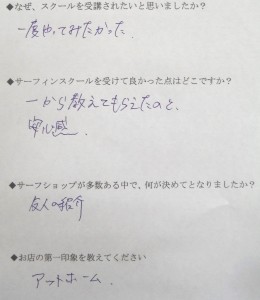 ◆なぜ、スクールを受講されたいと思いましたか？
一度やってみたかった.
◆サーフィンスクールを受けて良かった点はどこですか？
一から教えてもらえたのと、
◆サーフショップが多数ある中で、何が決めてとなりましたか？
友人の紹介
◆お店の第一印象を教えてください
アットホーム.